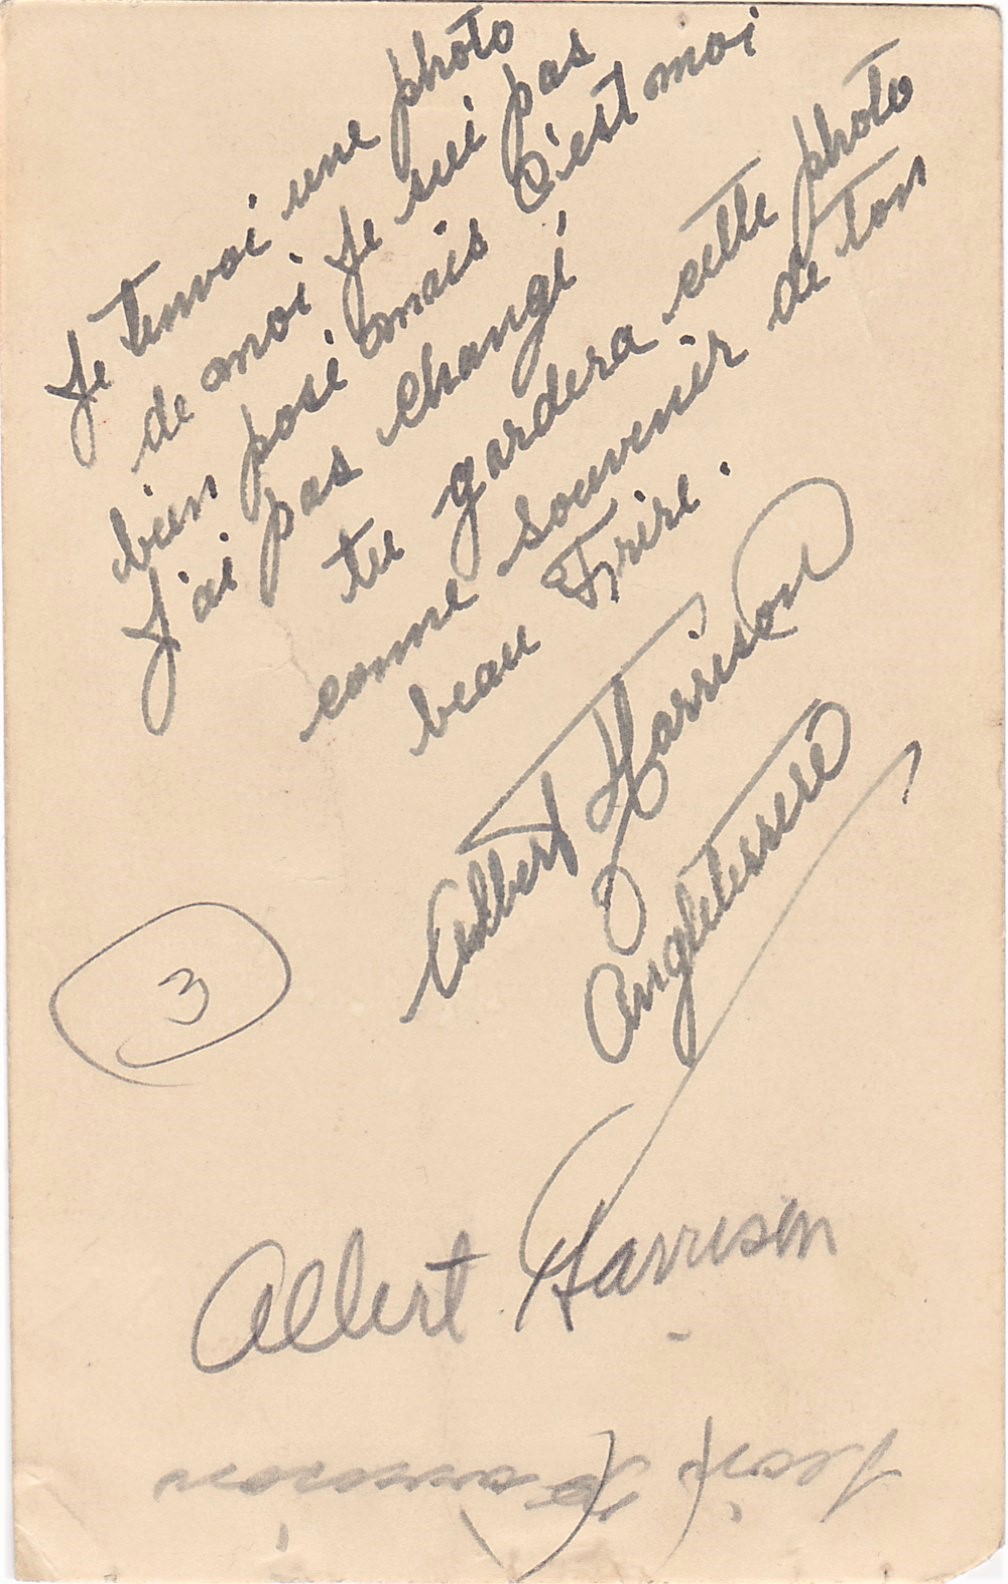 Je tenvoi une photo
de moi Je sui pas
bien posé mais c'est moi
J'ai pas changé
tu gardera cette photo
comme souvenir de ton
beau Frère.
Albert Harrison
Angleterre
3
Albert Harrison